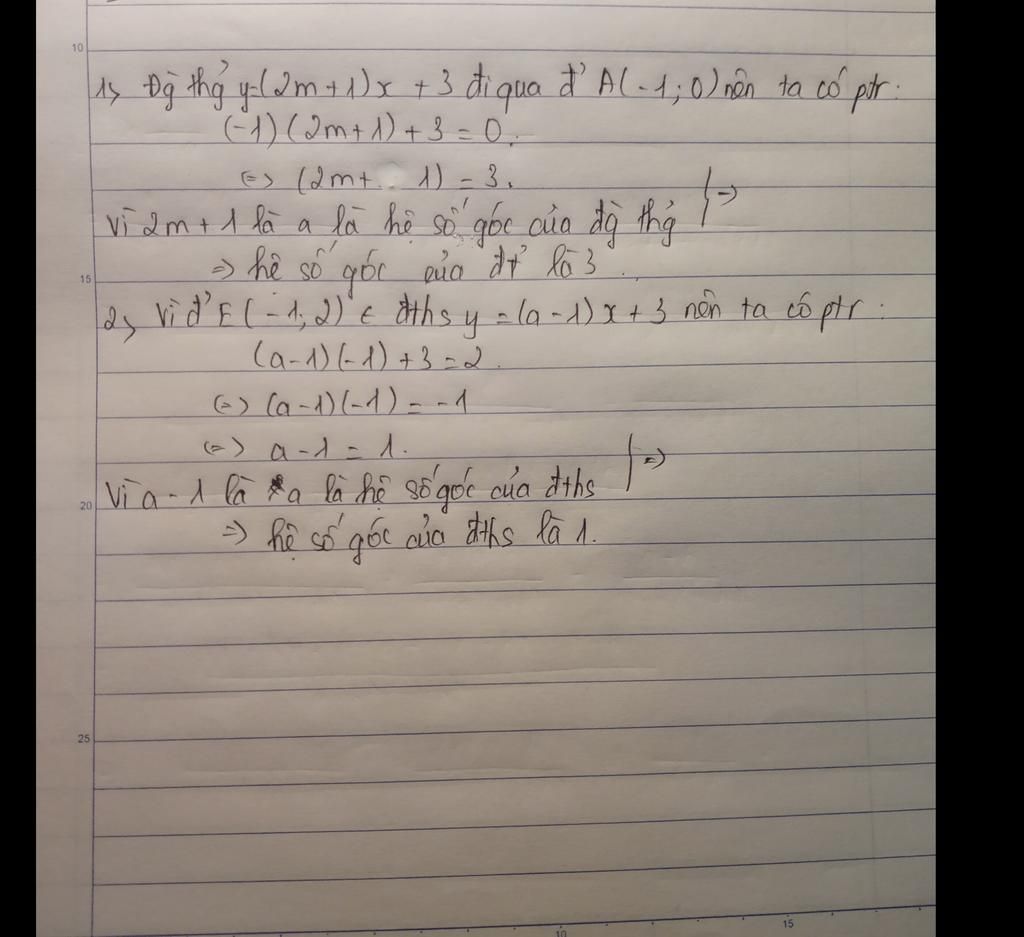 10
1, Đg thg y=(2m+1)x + 3 đi qua đ' A(-1; 0) nên ta có ptr:
(-1)(2m+1)+3=0.
<=> (2m+ 1) = 3.
Vì 2m+1 là a là hệ số góc của đg thg } =>
=> hệ số góc của đt là 3.
15
2, Vì đ' E(-1; 2) ∈ đths y = (a-1)x+3 nên ta có ptr:
(a-1)(-1)+3=2.
(=) (a-1)(-1) = -1
(=) a-1 = 1.
Vì a-1 là a là hệ số góc của đths } =>
20
=> hệ số góc của đths là 1.
25
10
15